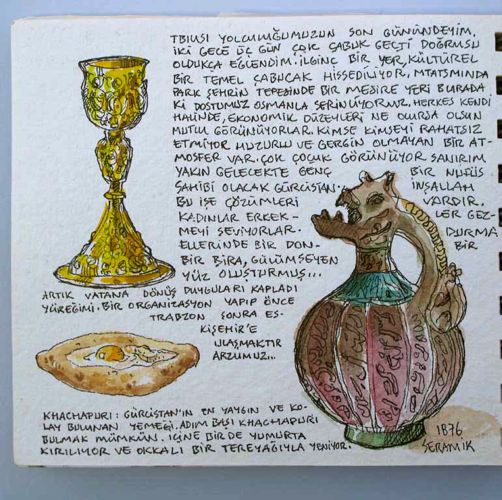 TBİLİSİ YOLCULUĞUMUZUN SON GÜNÜNDEYİM,
İKİ GECE ÜÇ GÜN ÇOK ÇABUK GEÇTİ DOĞRUSU
OLDUKÇA EĞLENDİM. İLGİNÇ BİR YER, KÜLTÜREL
BİR TEMEL ÇABUCAK HİSSEDİLİYOR, MTATSMİNDA
PARK ŞEHRİN TEPESİNDE BİR MESİRE YERİ BURADA
Kİ DOSTUMUZ OSMANLA SERİNLİYORUZ. HERKES KENDİ
HALİNDE, EKONOMİK DÜZEYLERİ NE OLURSA OLSUN
MUTLU GÖRÜNÜYORLAR. KİMSE KİMSEYİ RAHATSIZ
ETMİYOR HUZURLU VE GERGİN OLMAYAN BİR AT-
MOSFER VAR. ÇOK ÇOCUK GÖRÜNÜYOR SANIRIM
YAKIN GELECEKTE GENÇ BİR NÜFUS
SAHİBİ OLACAK GÜRCİSTAN. İNŞALLAH
BU İŞE ÇÖZÜMLERİ VARDIR.
KADINLAR ERKEK- LER GEZ-
MEYİ SEVİYORLAR. DURMA
ELLERİNDE BİR DON- BİR
BİR BİRA, GÜLÜMSEYEN
YÜZ OLUŞTURMUŞ...
ARTIK VATANA DÖNÜŞ DUYGULARI KAPLADI
YÜREĞİMİ. BİR ORGANİZASYON YAPIP ÖNCE
TRABZON SONRA ES-
KİŞEHİR'E
ULAŞMAKTIR
ARZUMUZ...
KHACHAPURI: GÜRCİSTAN'IN EN YAYGIN VE KO-
LAY BULUNAN YEMEĞİ. ADIM BAŞI KHACHAPURI
BULMAK MÜMKÜN. İÇİNE BİR DE YUMURTA
KIRILIYOR VE OKKALI BİR TEREYAĞIYLA YENİYOR.
1876
SERAMİK